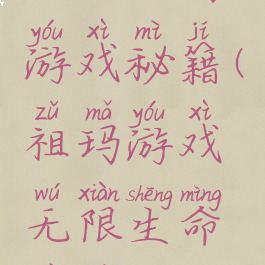 yóu xì mì jí
游戏秘籍(
zǔ mǎ yóu xì
祖玛游戏
wú xiàn shēng mìng
无限生命